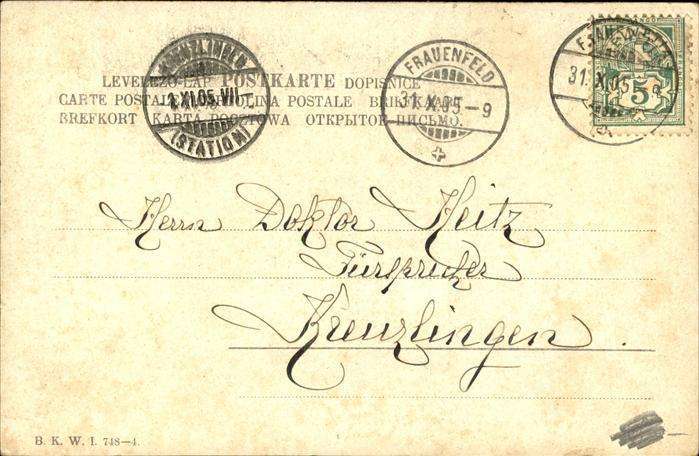 KREUZLINGEN
1.XI.05.VII-
(STATION)
FRAUENFELD
31.X.05-9
FRAUENFELD
31.X.05-9
5
LEVELEZŐ-LAP POSTKARTE DOPISNICE
CARTE POSTALE CARTOLINA POSTALE BRIEFKAART
BREFKORT KARTA POCZTOWA ОТКРЫТОЕ ПИСЬМО.
Herrn Doktor Heitz
Fürsprecher
Kreuzlingen
B. K. W. I. 748-4.